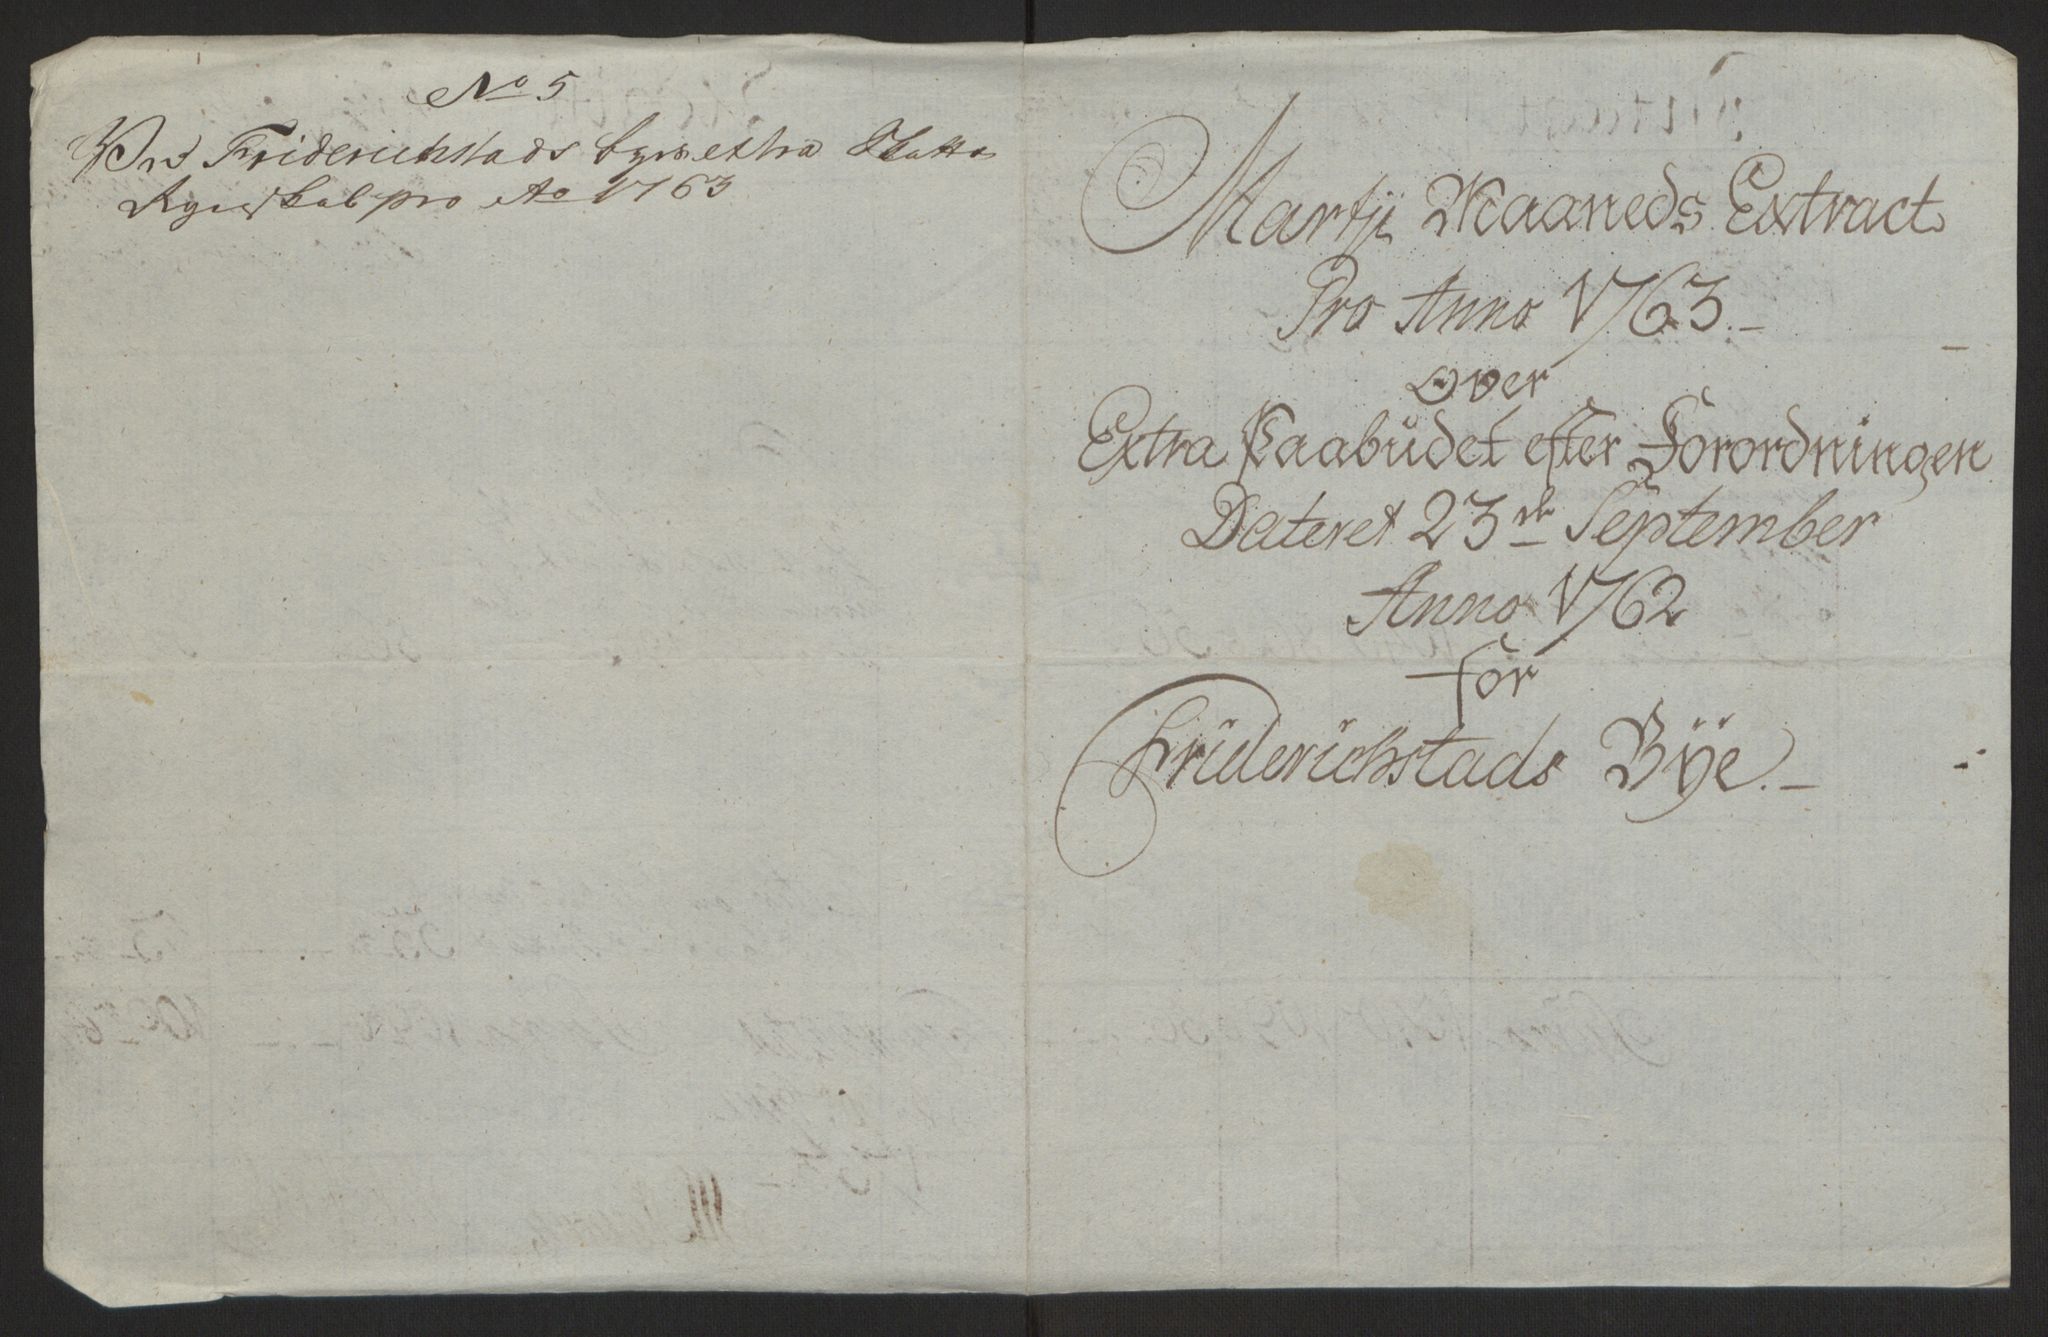 No 5
Ved Friderichstads byes extra Skatte
Regnskab pro Ao 1763
Martji Maaneds Extract
Pro Anno 1763.
Over
Extra Paabüdet efter Forordningen
Dateret 23de September
Anno 1762
for
Friderichstads Bÿe.